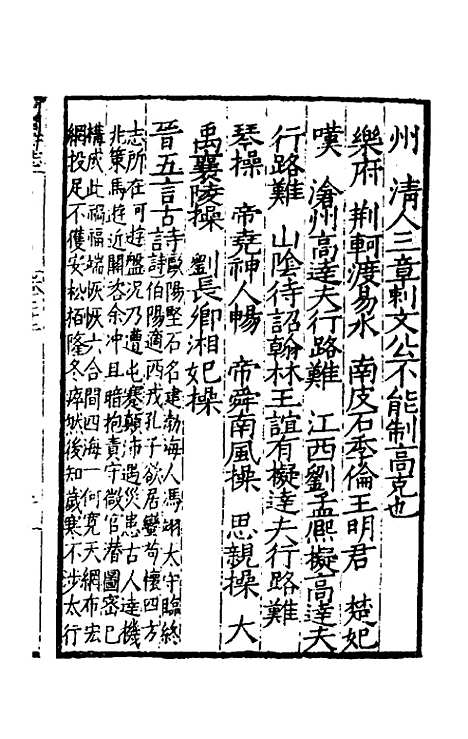 州　清人三章刺文公不能制高克也
樂府　荆軻渡易水　南皮石季倫王明君　楚妃
嘆　滄州高達夫行路難　江西劉孟熙擬高達夫
行路難　山陰待詔翰林王誼有擬達夫行路難
琴操　帝堯神人暢　帝舜南風操　思親操　大
禹襄陵操　劉長卿湘妃操
晉五言古詩歐陽堅石名建渤海人馮翊太守臨終
言詩伯陽適西戎孔子欲居蠻苟懷四方
志所在可遊盤况乃遭屯蹇顛沛遇災患古人達機
兆策馬遊近關咨余冲且暗抱責守微官潛圖密已
構成此禍福端恢恢六合間四海一何寛天網布宏
網投足不獲安松栢隆冬瘁然後知歲寒不涉太行